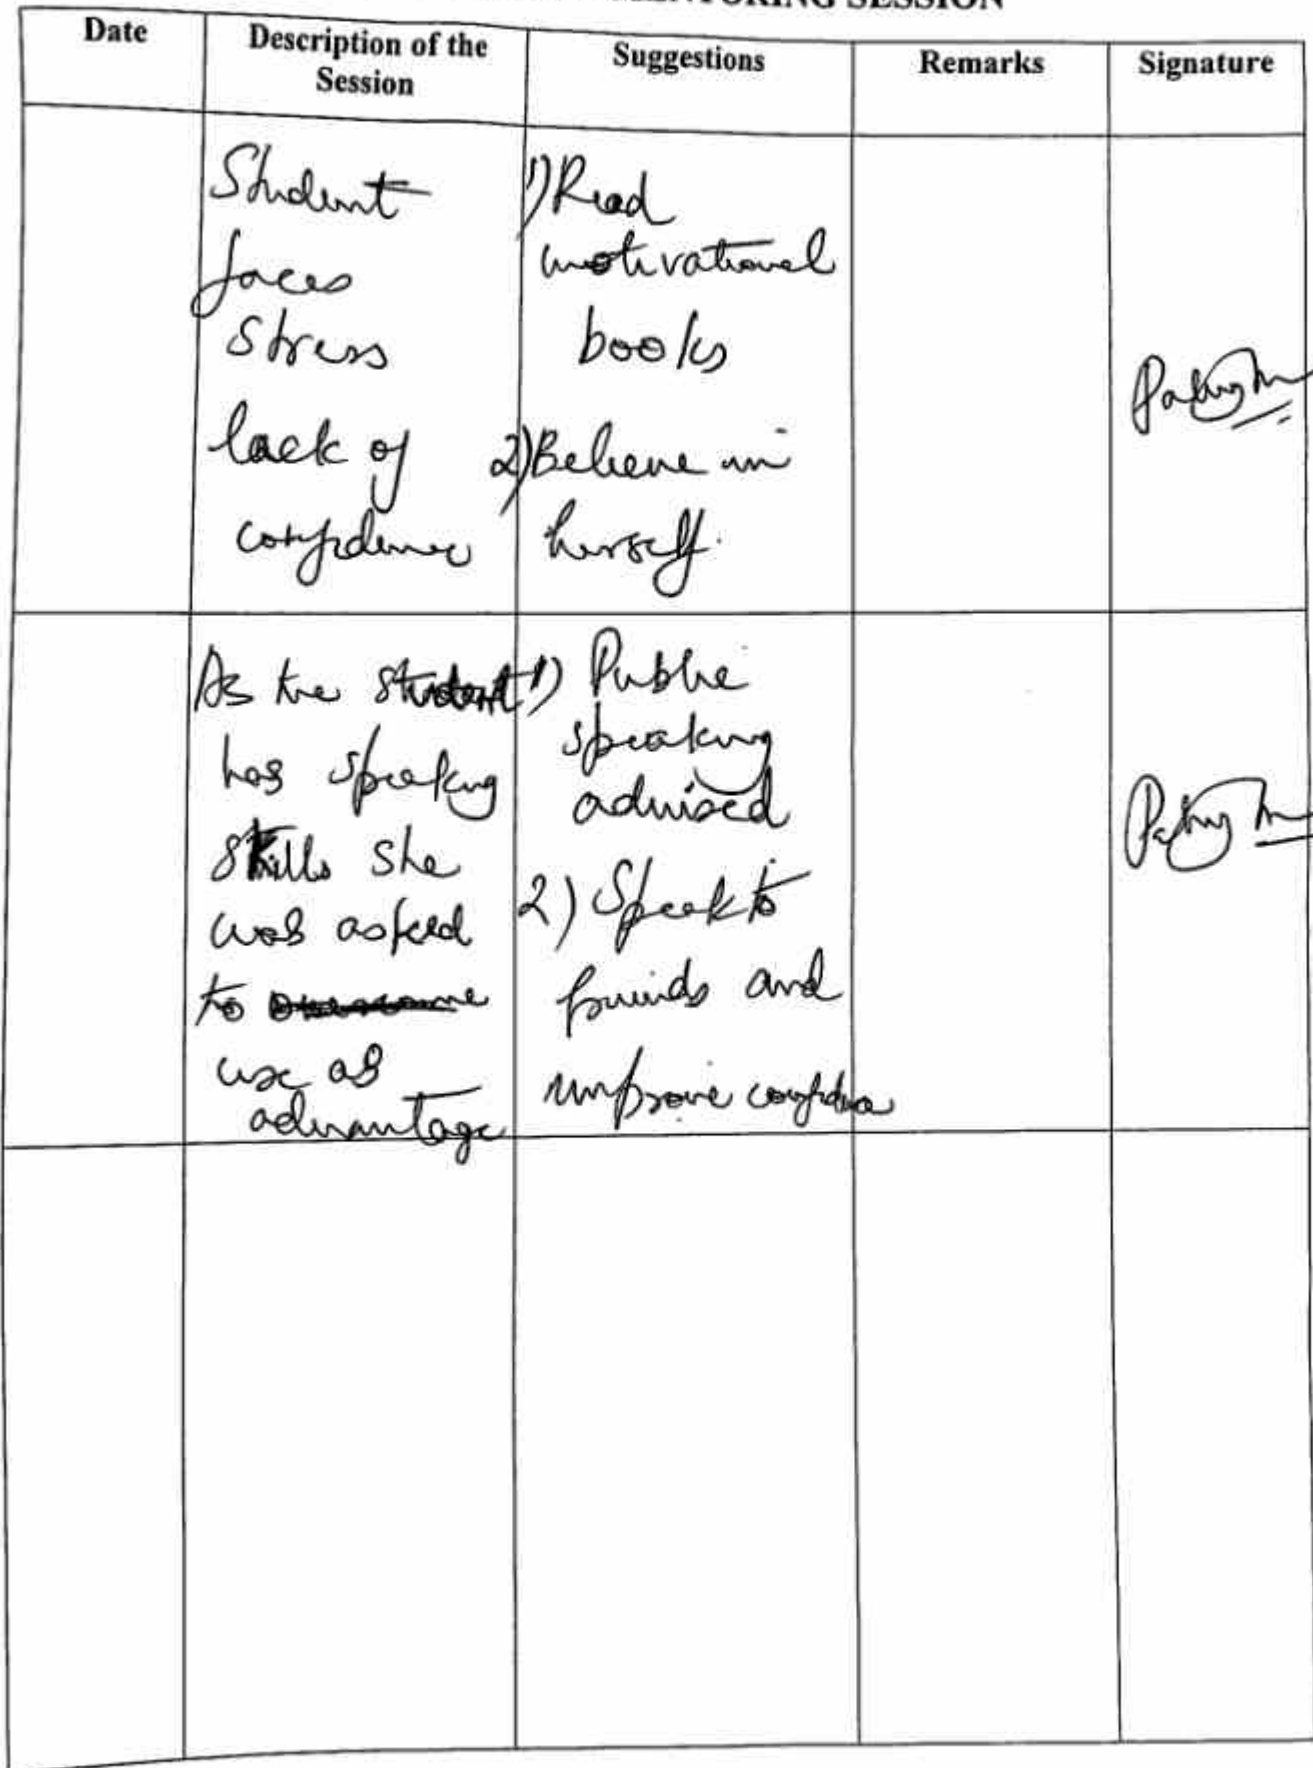 MENTORING SESSION
Date
Description of the
Session
Suggestions
Remarks
Signature
Student
faces
Stress
lack of
confidence
1) Read
motivational
books
2) Believe in
herself.
As the student
has speaking
skills she
was asked
to
use as
advantage
1) Public
speaking
advised
2) Speak to
friends and
improve